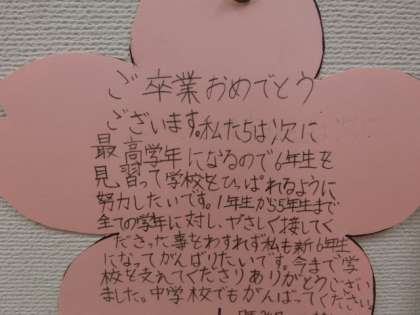 ご卒業おめでとう
ございます。私たちは次に
最高学年になるので6年生を
見習って学校をひっぱれるように
努力したいです。1年生から5年生まで
全ての学年に対し、やさしく接してく
ださった事をわすれず私も新6年生
になってがんばりたいです。今まで学
校を支えてくださりありがとうござい
ました。中学校でもがんばってください